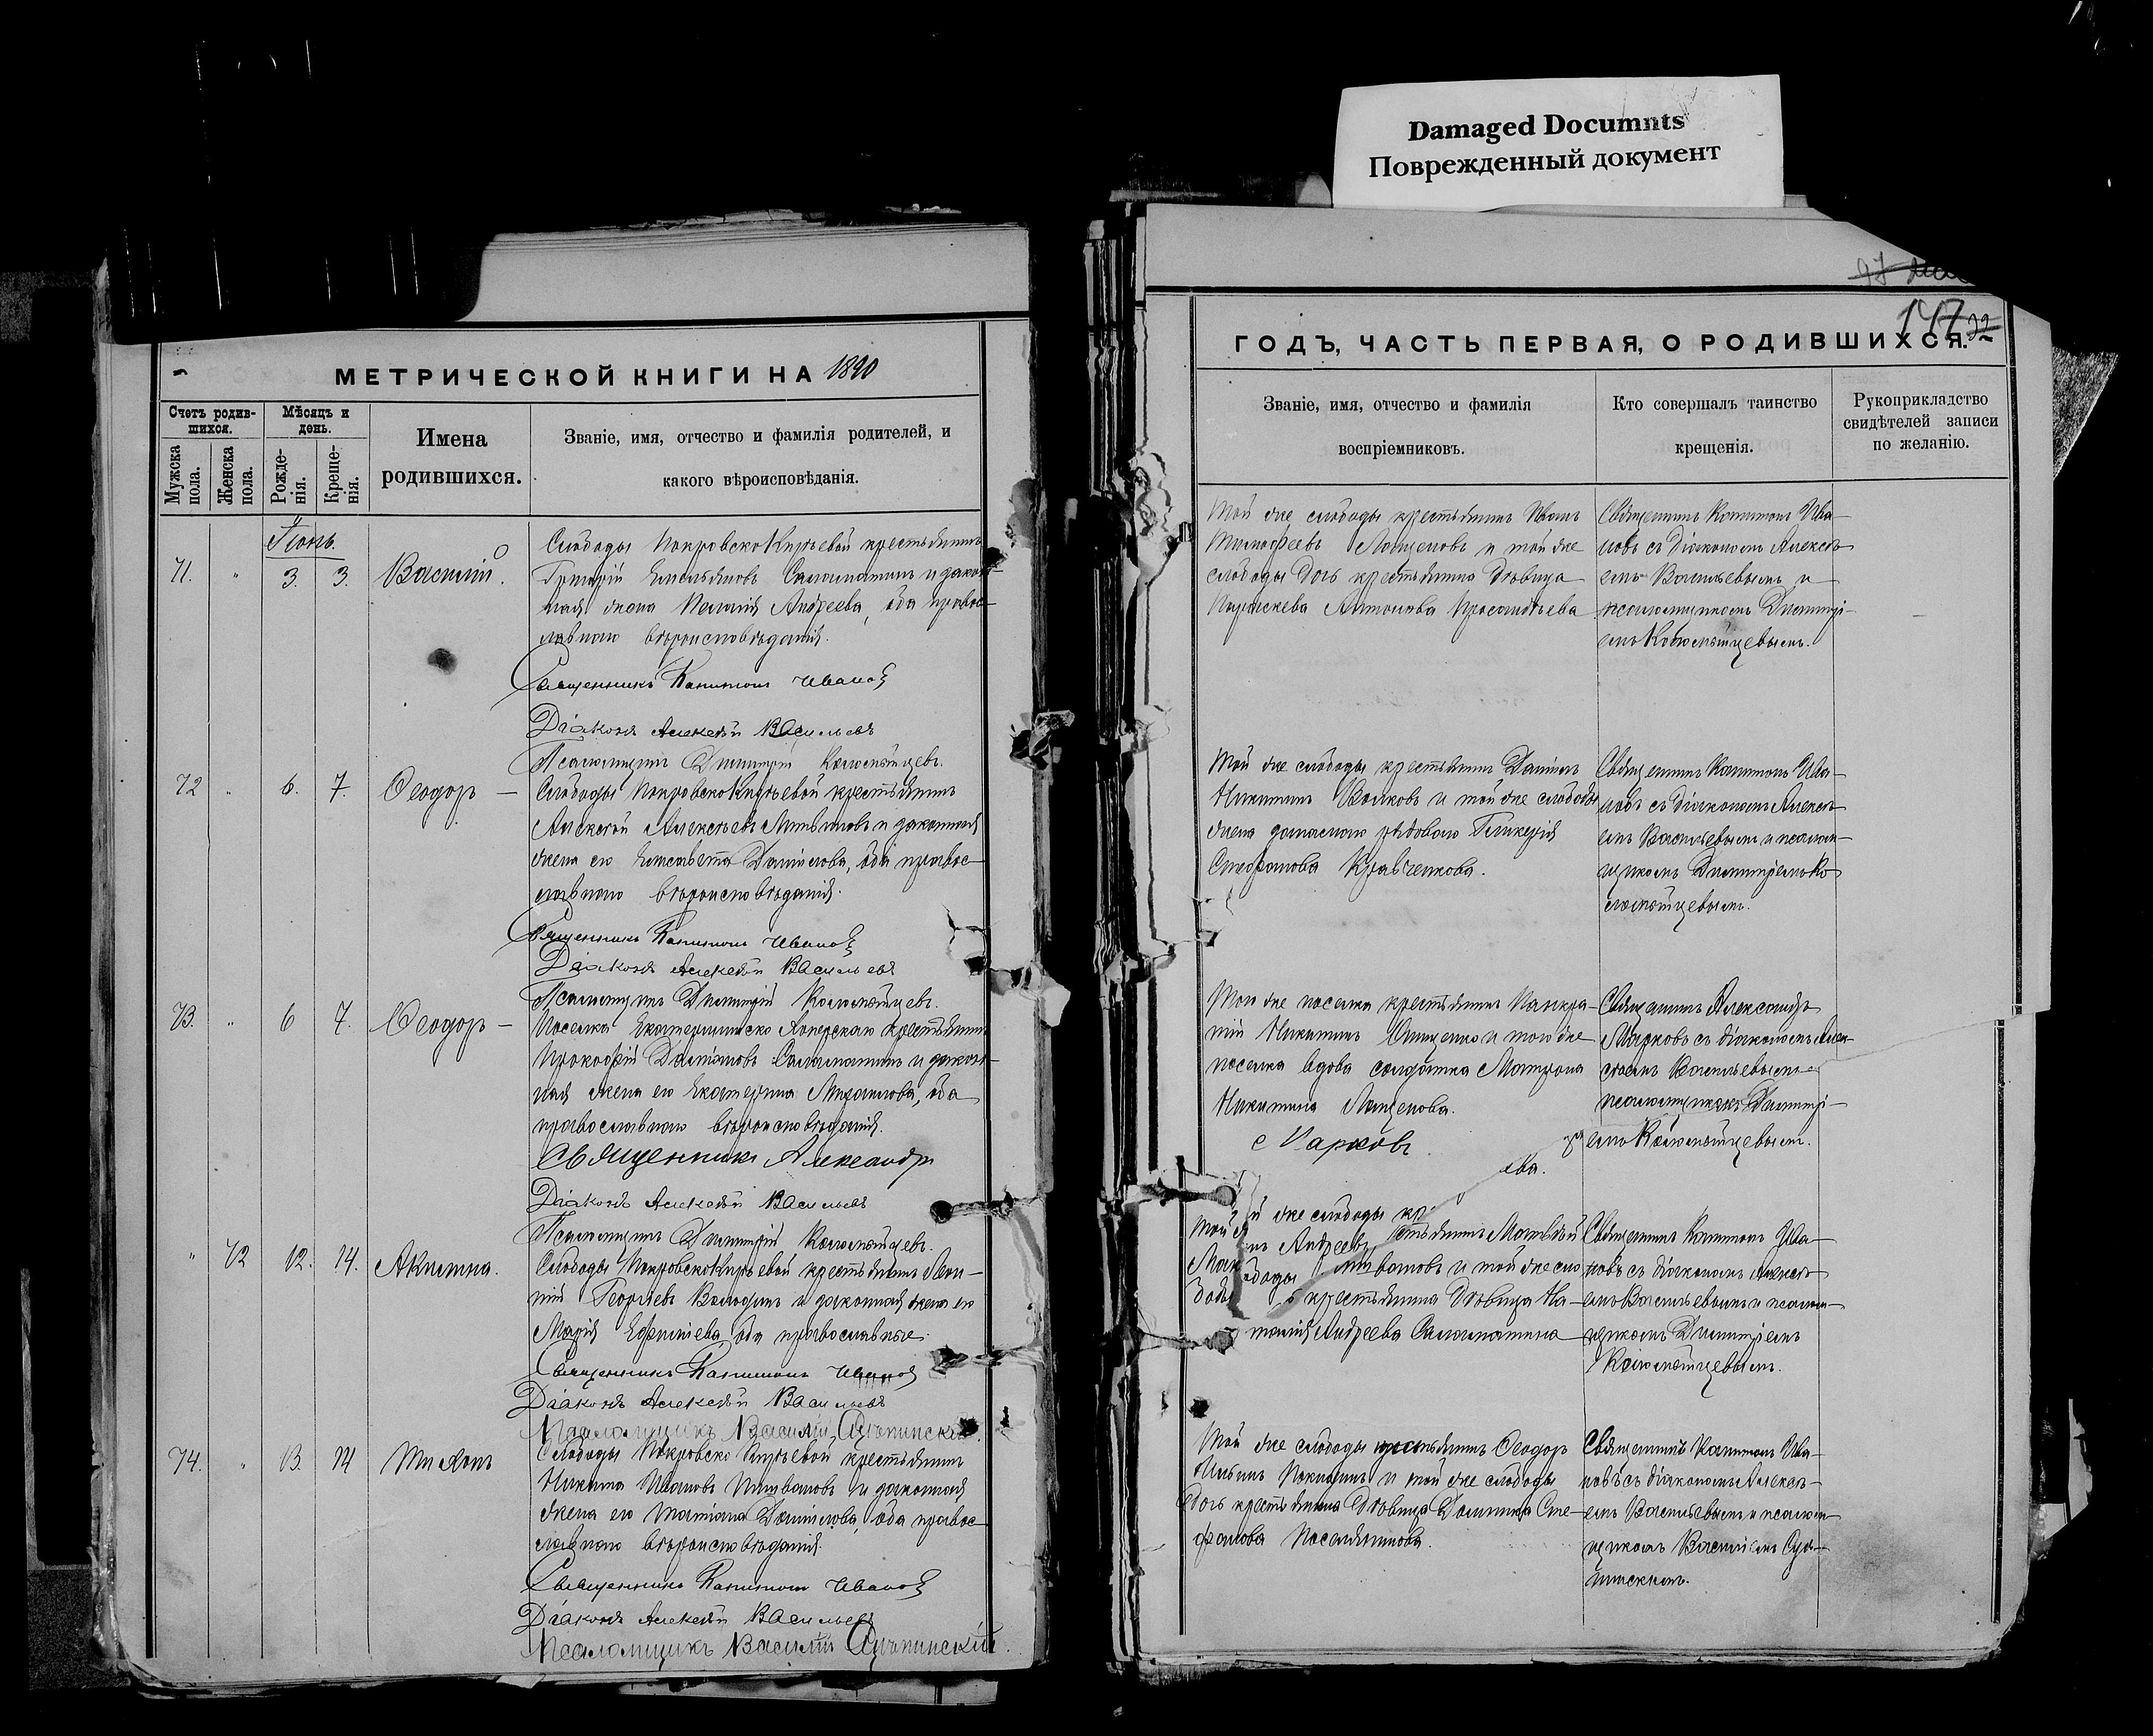 Damaged Documnts
Поврежденный документ
147
МЕТРИЧЕСКОЙ КНИГИ НА 1890
Счетъ родив-
шихся.
Мужска
пола.
Женска
пола.
Мѣсяцъ и
день.
Рожде-
нія.
Креще-
нія.
Имена
родившихся.
Званіе, имя, отчество и фамилія родителей, и
какого вѣроисповѣданія.
Іюнь.
71. " 3. 3. Василій.
Слободы ПокровскоКирѣевой крестьянинъ
Григорій Емельяновъ Саламатинъ и закон-
ная жена Пелагія Андреева, оба правос-
лавнаго вѣроисповѣданія.
Священникъ Капитонъ Ивановъ
Діаконъ Алексѣй Васильевъ
Псаломщикъ Димитрій
72 " 6. 7. Ѳеодоръ —
Слободы ПокровскоКирѣевой крестьянинъ
Алексѣй Алексѣевъ и законная
жена его Елисавета Даніилова, оба правос-
лавнаго вѣроисповѣданія.
Священникъ Капитонъ Ивановъ
Діаконъ Алексѣй Васильевъ
Псаломщикъ Димитрій
73. " 6 7. Ѳеодоръ —
Поселка крестьянинъ
Прокофій Даміановъ Саламатинъ и закон-
ная жена его Екатерина Михаилова, оба
православнаго вѣроисповѣданія.
Священникъ Александръ
Діаконъ Алексѣй Васильевъ
Псаломщикъ Димитрій
" 72 12. 14. Акилина.
Слободы ПокровскоКирѣевой крестьянинъ Леон-
тій Георгіевъ Володинъ и законная жена его
Марія Ефиміева, оба православные.
Священникъ Капитонъ Ивановъ
Діаконъ Алексѣй Васильевъ
Псаломщикъ Василій
74. " 13. 14 Тихонъ
Слободы ПокровскоКирѣевой крестьянинъ
Никита Ивановъ и законная
жена его Татіана Даніилова, оба правос-
лавнаго вѣроисповѣданія.
Священникъ Капитонъ Ивановъ
Діаконъ Алексѣй Васильевъ
Псаломщикъ Василій
ГОДЪ, ЧАСТЬ ПЕРВАЯ, О РОДИВШИХСЯ.
Званіе, имя, отчество и фамилія
воспріемниковъ.
Кто совершалъ таинство
крещенія.
Рукоприкладство
свидѣтелей записи
по желанію.
Той же слободы крестьянинъ Иванъ
Тимофеевъ Лащеновъ и той же
слободы дочь крестьянина дѣвица
Параскева Антонова
Священникъ Капитонъ Ива-
новъ съ діакономъ Алексѣ-
емъ Васильевымъ и
псаломщикомъ Димитрі-
емъ
Той же слободы крестьянинъ Даніилъ
Никитинъ Волковъ и той же слободы
жена запаснаго рядоваго Гликерія
Стефанова Кравченкова.
Священникъ Капитонъ Ива-
новъ съ діакономъ Алексѣ-
емъ Васильевымъ и псалом-
щикомъ Димитріемъ
Того же поселка крестьянинъ Панкра-
тій Никитинъ и того же
поселка вдова солдатка Матрона
Никитина Лащенова.
Марковъ
Священникъ Александръ
Марковъ съ діакономъ Алек-
сѣемъ Васильевымъ и
псаломщикомъ Димитрі-
емъ
Той же слободы
крестьянинъ Матвѣй
и той же сло
боды крестьянина дѣвица На-
талія Андреева Саламатина
Священникъ Капитонъ Ива-
новъ съ діакономъ Алексѣ-
емъ Васильевымъ и псалом-
щикомъ Димитріемъ
Той же слободы крестьянинъ Ѳеодоръ
Ильинъ и той же слободы
дочь крестьянина дѣвица Домника Сте-
фанова
Священникъ Капитонъ Ива-
новъ съ діакономъ Алексѣ-
емъ Васильевымъ и псалом-
щикомъ Василіемъ